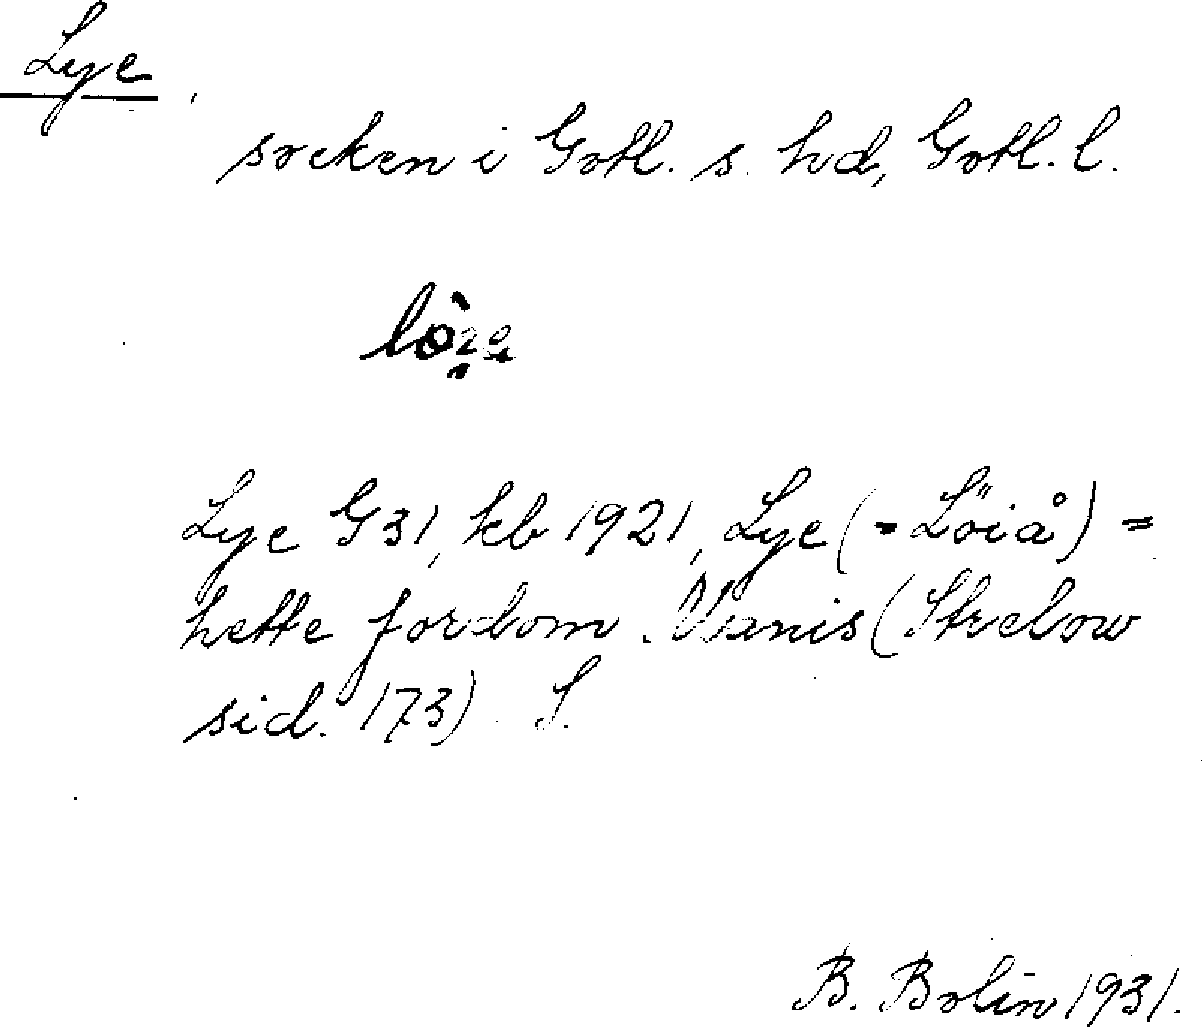 Lye,
socken i Gotl. s. hd, Gotl. l.
Lye G31, kb 1921, Lye (= Löiå) =
hette fordom Vanis (Strelow
sid. 173) S.
B. Bolin 1931.